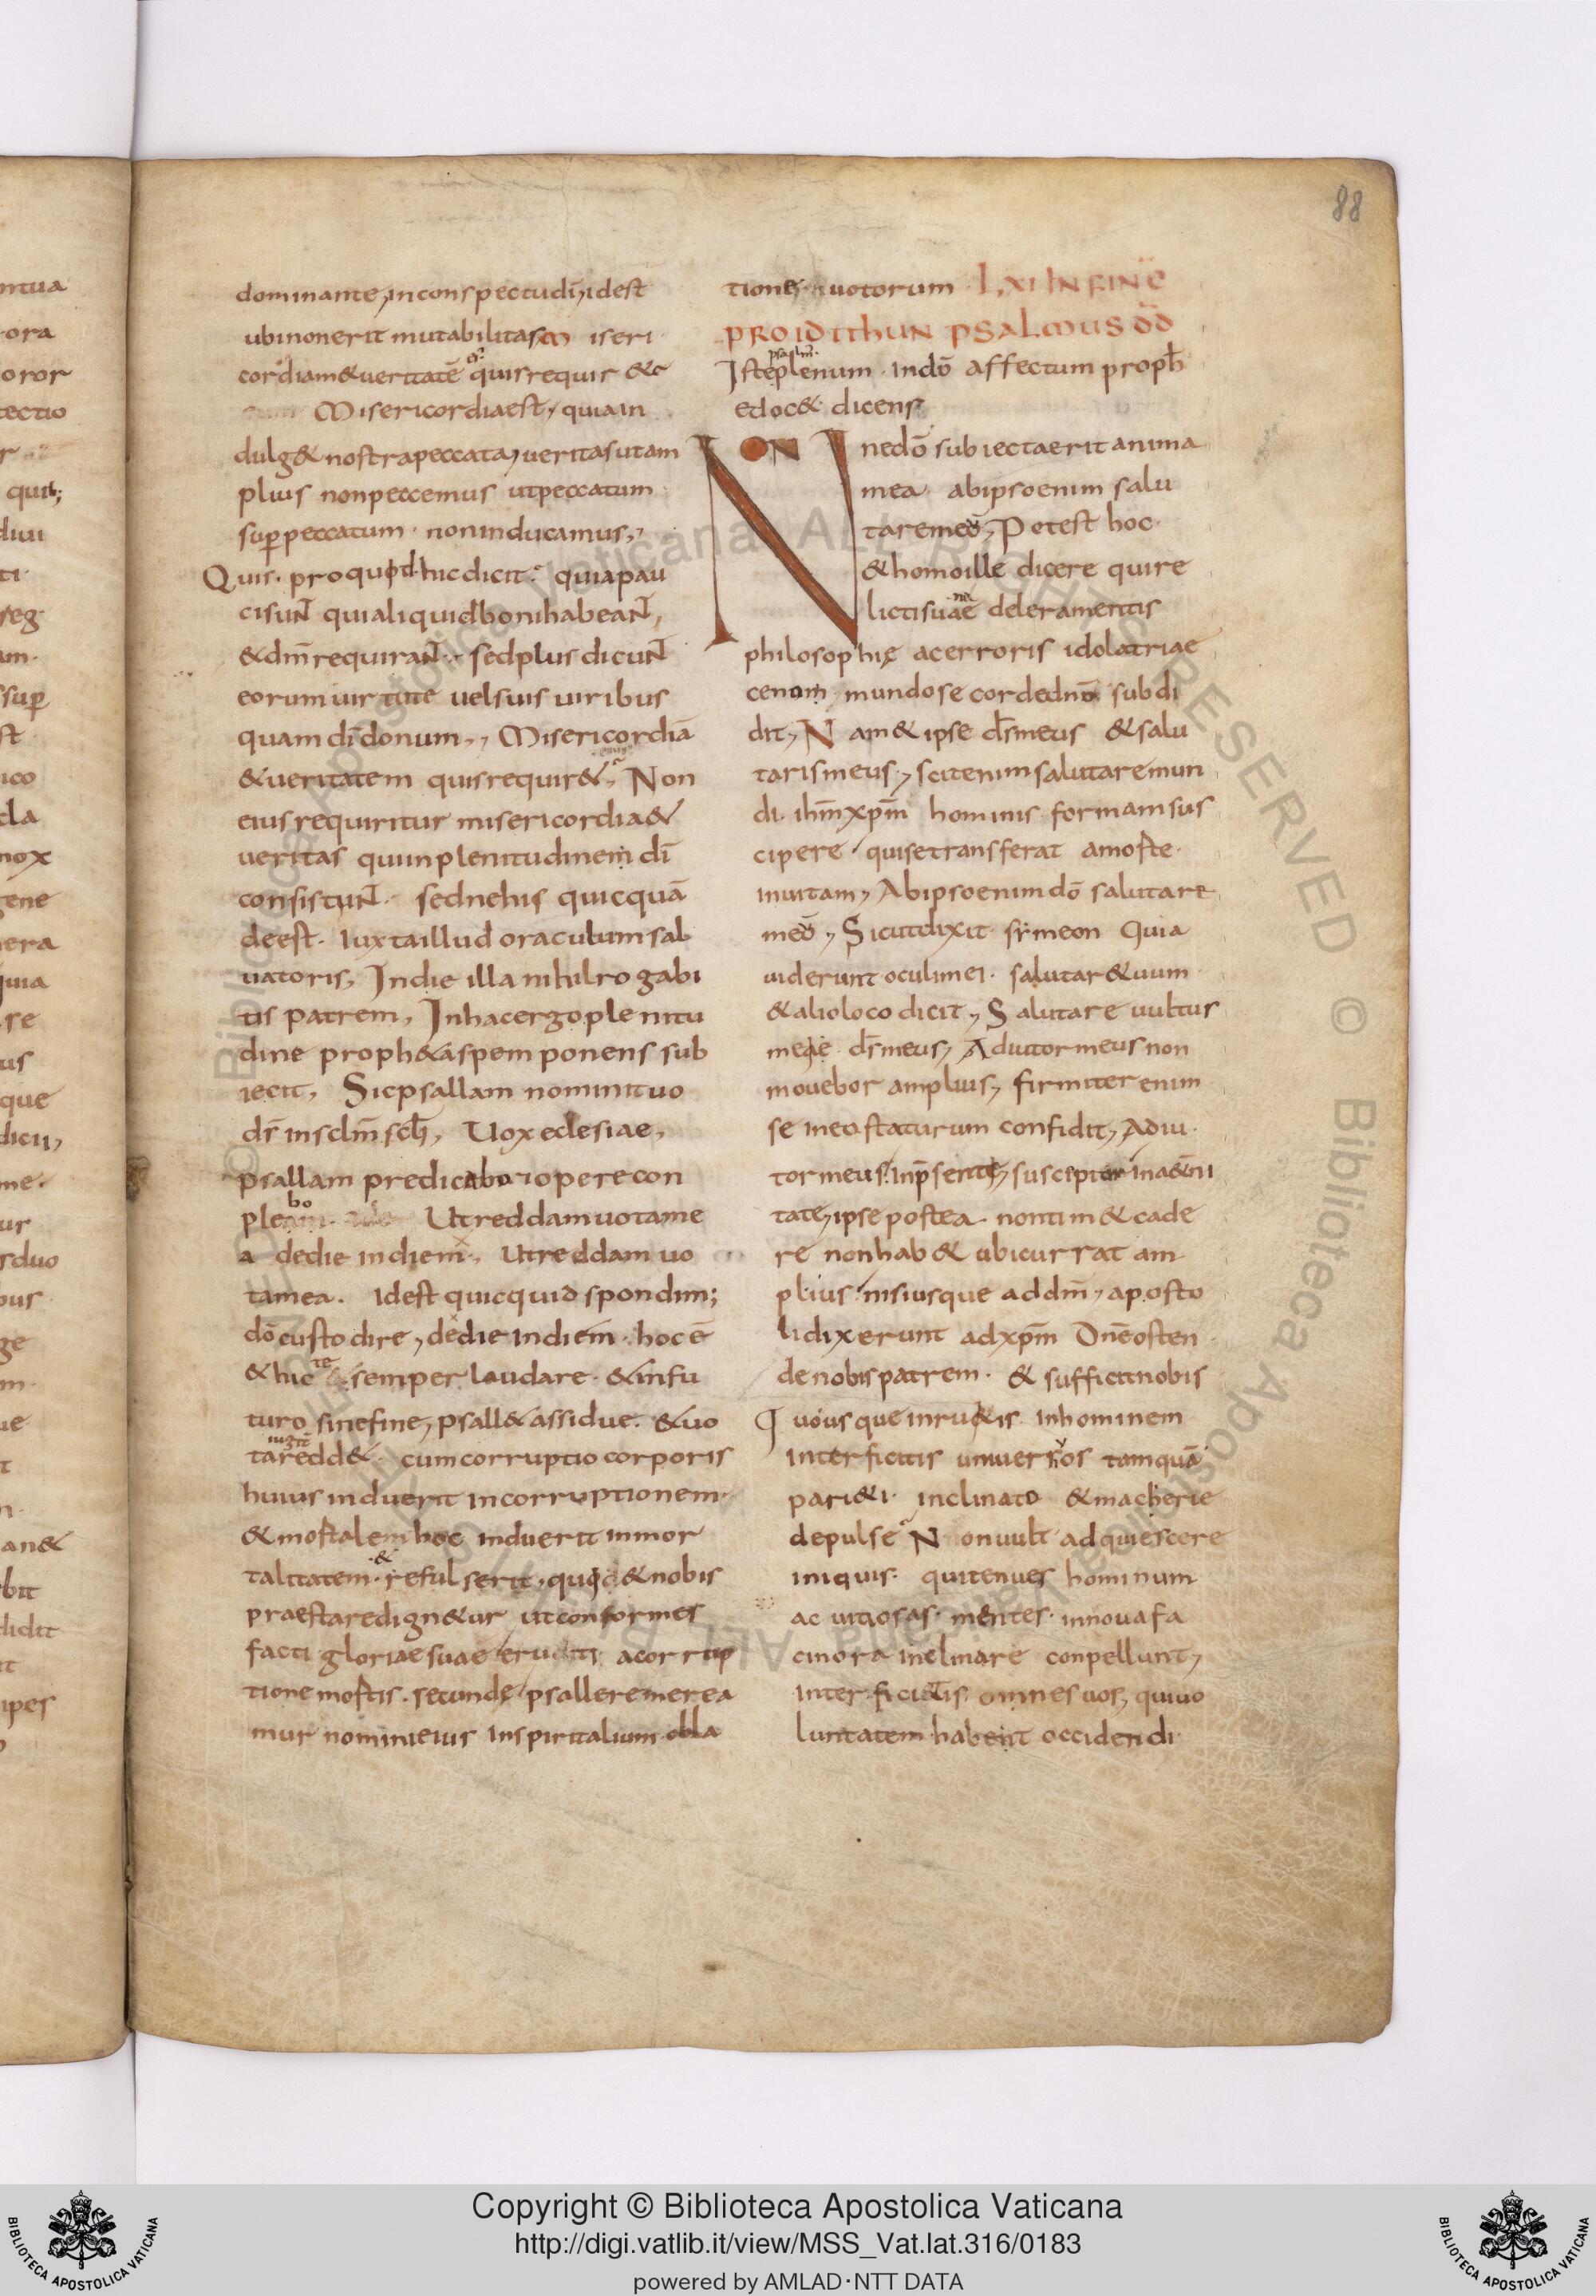 88
dominante, inconspectu dī, idest
ubi non erit mutabilitas Miseri
cordiam & veritatē ei' quis requir &c
Misericordia est, quia in
dulg& nostra peccata, veritas ut am
plius non peccemus ut peccatum
sup peccatum · non inducamus,
Quis · pro quod hic dicit · quia pau
ci sunt qui aliquid boni habeant,
& dm̄ requirant · sed plus dicunt
eorum virtute vel suis viribus
quam dī donum, Misericordiā
& veritatem quis requir&, Non
eius requiritur misericordia &
veritas qui in plenitudinem dī
consistunt · sed ne his quicquā
deest · Iuxta illud oraculum sal
vatoris, In die illa nihil rogabi
tis patrem, In hac ergo ple nitu
dine proph&a spem ponens sub
iecit, Sic psallam nomini tuo
ds̄ in sclm̄ scłi, Vox eclesiae,
psallam predicabo opere con
plebo Ut reddam vota me
a de die in diem, Ut reddam vo
ta mea. Id est quicquid spondim;
dō custodire, de die in diem · hoc ē
& hic te semper laudare · & in fu
turo sine fine, psall& assidue · & vo
ta redd& · cum corruptio corporis
huius induerit incorruptionem ·
& mortalem hoc induerit inmor
talitatem · & refulserit, quod & nobis
praestare dign&ur ut conformes
facti gloriae suae eruditi a corrup
tione mortis · secunde psallere merea
mur nomini eius in spiritalium obla
tione votorum LXI IN FINĒ
PRO IDITHUN PSALMUS DD̄
Iste psalm̄ plenum · in dō affectum proph̄
edoc& dicens
NON ne dō subiecta erit anima
mea · ab ipso enim salu
tare meū, Potest hoc ·
& homo ille dicere qui re
lictis vanae deleramentis
philosophię ac erroris idolatriae
cenam · mundo se corde dn̄o subdi
dit, Nam & ipse ds̄ meus & salu
taris meus, scit enim salutare mun
di · ihm̄ xpm̄ hominis formam sus
cipere qui se transferat a morte ·
in vitam, Ab ipso enim dō salutare
meū, Sicut dixit symeon Quia
viderunt oculi mei · salutar& uum ·
& alio loco dicit, Salutare vultus
mei ds̄ meus, Adiutor meus non
movebor amplius, firmiter enim
se in eo staturum confidit, Adiu ·
tor meus in p̄sente, susceptor in a&erni
tate, ipse postea · non tim& cade
re non hab& ubi currat am
plius nisi usque ad dm̄, aposto
li dixerunt ad xpm̄ Dnē osten
de nobis patrem · & sufficit nobis
Quousque inruitis in hominem
interficitis universos tamquā
pari&i · inclinato & macherie
depulse Non vult adquiescere
iniquis · qui tenues hominum
ac vitiosas · mentes · in nova fa
cinora inclinare conpellunt,
Interficitis omnes vos, qui vo
luntatem habent occidendi ·
Copyright © Biblioteca Apostolica Vaticana
http://digi.vatlib.it/view/MSS_Vat.lat.316/0183
powered by AMLAD·NTT DATA
BIBLIOTECA APOSTOLICA VATICANA
BIBLIOTECA APOSTOLICA VATICANA